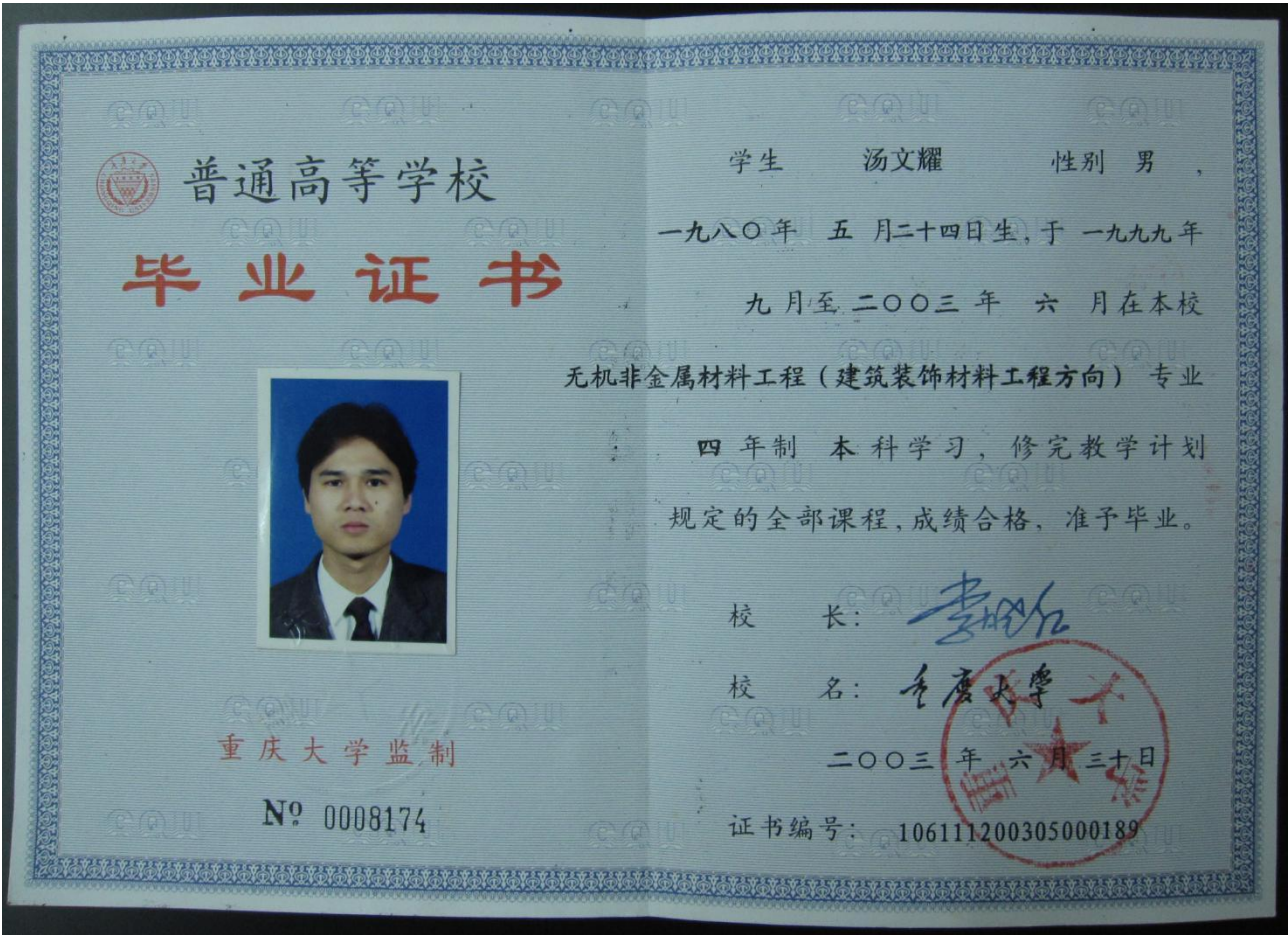 普通高等学校
毕业证书
重庆大学监制
Nº 0008174
学生 汤文耀 性别 男,
一九八〇年 五 月二十四日生,于 一九九九年
九 月至 二〇〇三 年 六 月在本校
无机非金属材料工程(建筑装饰材料工程方向) 专业
四 年制 本 科学习, 修完教学计划
规定的全部课程,成绩合格, 准予毕业。
校 长:
校 名: 重庆大学
二〇〇三 年 六 月 三十日
证书编号: 106111200305000189
重庆大学
CQU